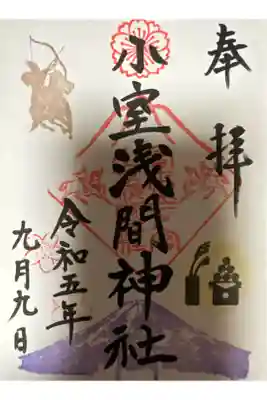 奉拝
小室浅間神社
令和五年
九月九日